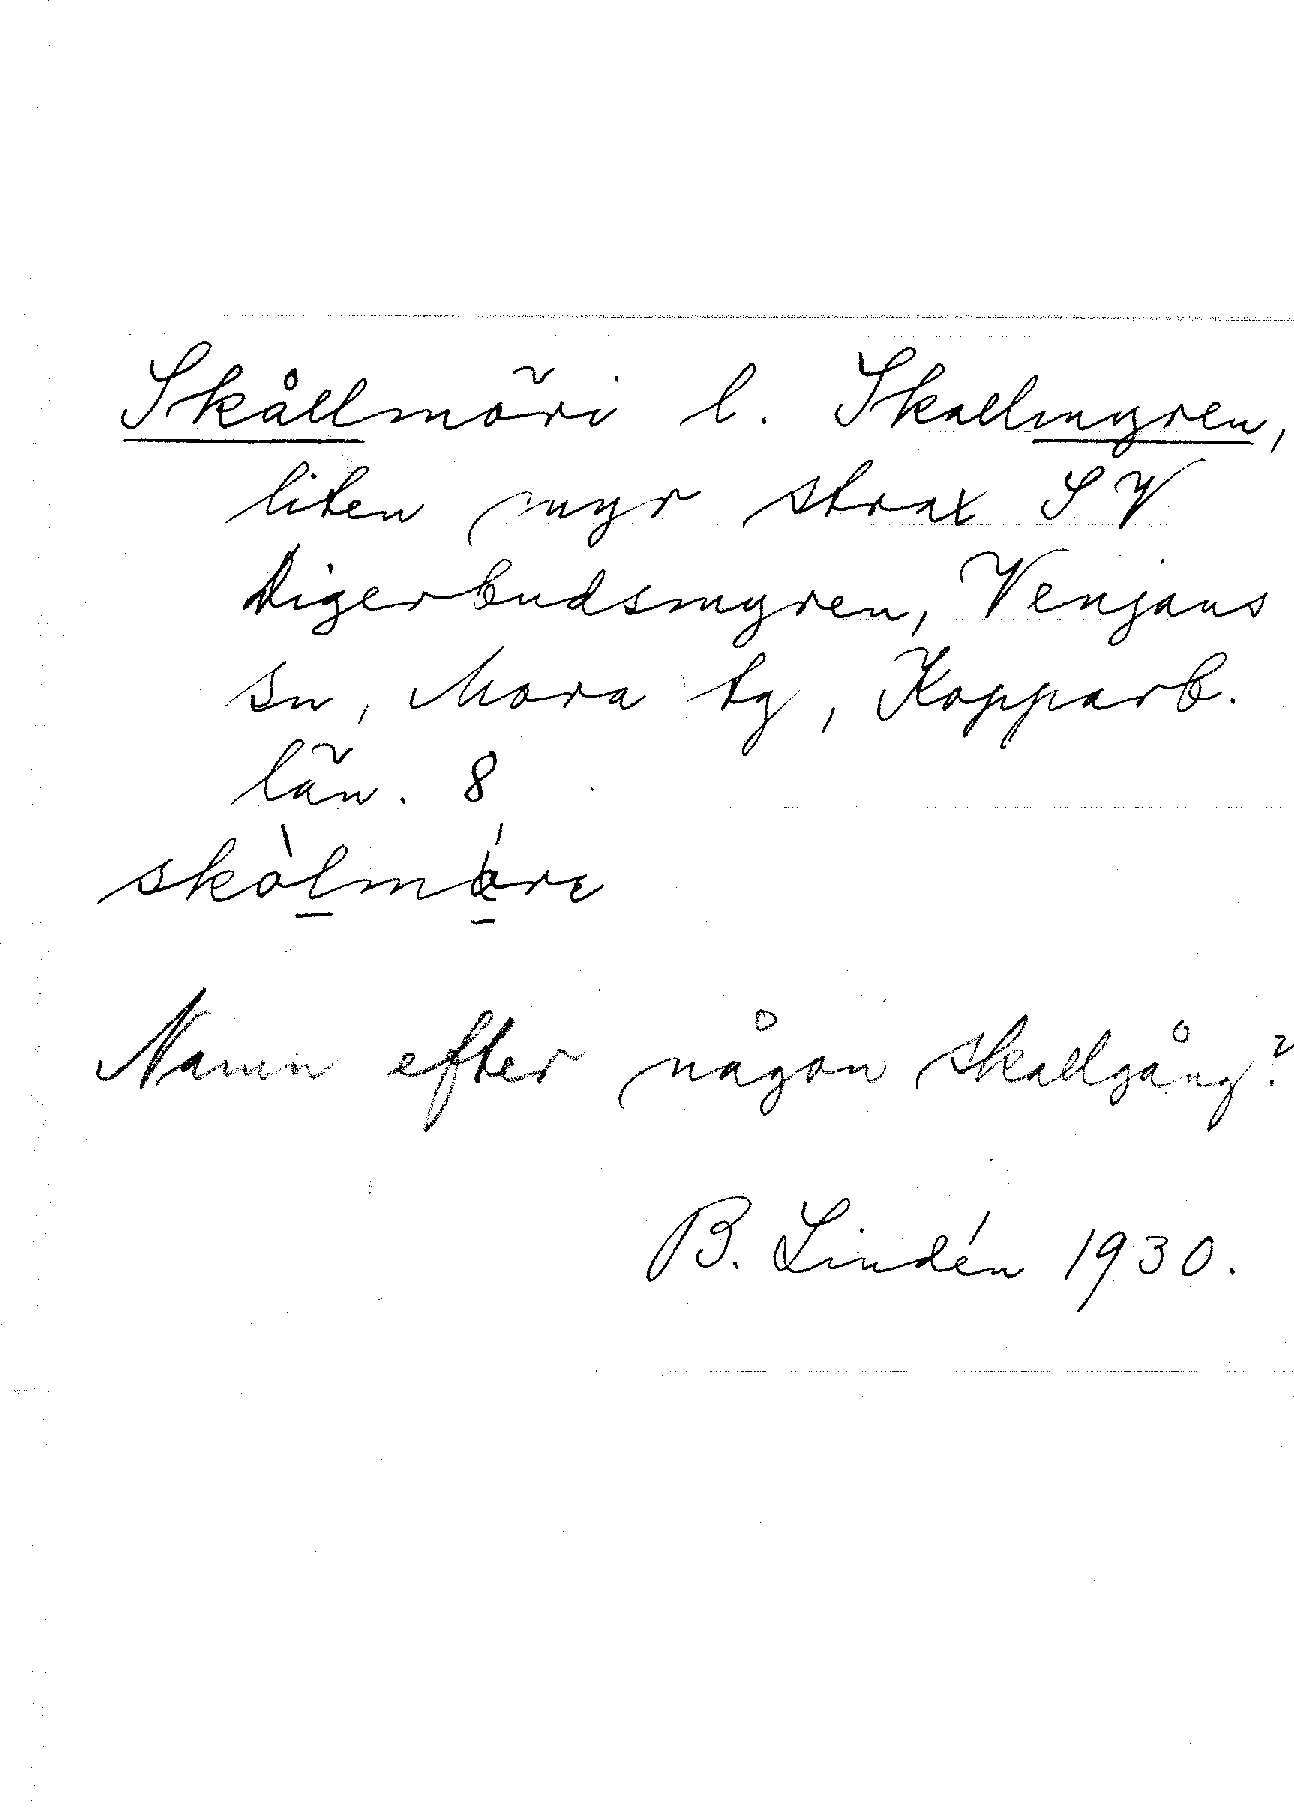 Skållmöri l. Skallmyren,
liten myr strax SV
Digerbudsmyren, Venjans
sn, Mora tg, Kopparb.
län. 8
Namn efter någon skallgång?
B. Lindén 1930.